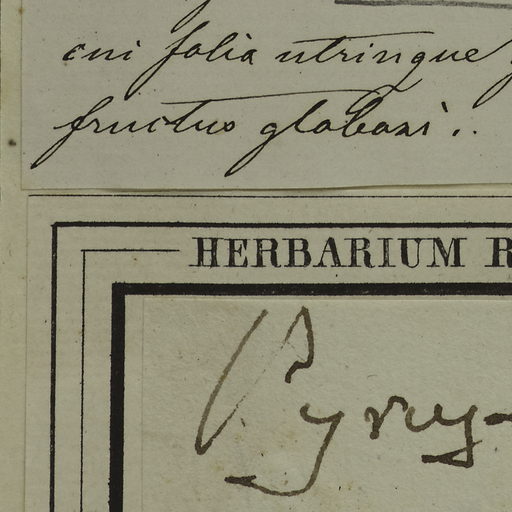 cui folia utrinque
fructus globosi..
HERBARIUM R
Pyrus